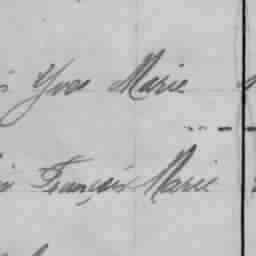 Yves Marie
François Marie